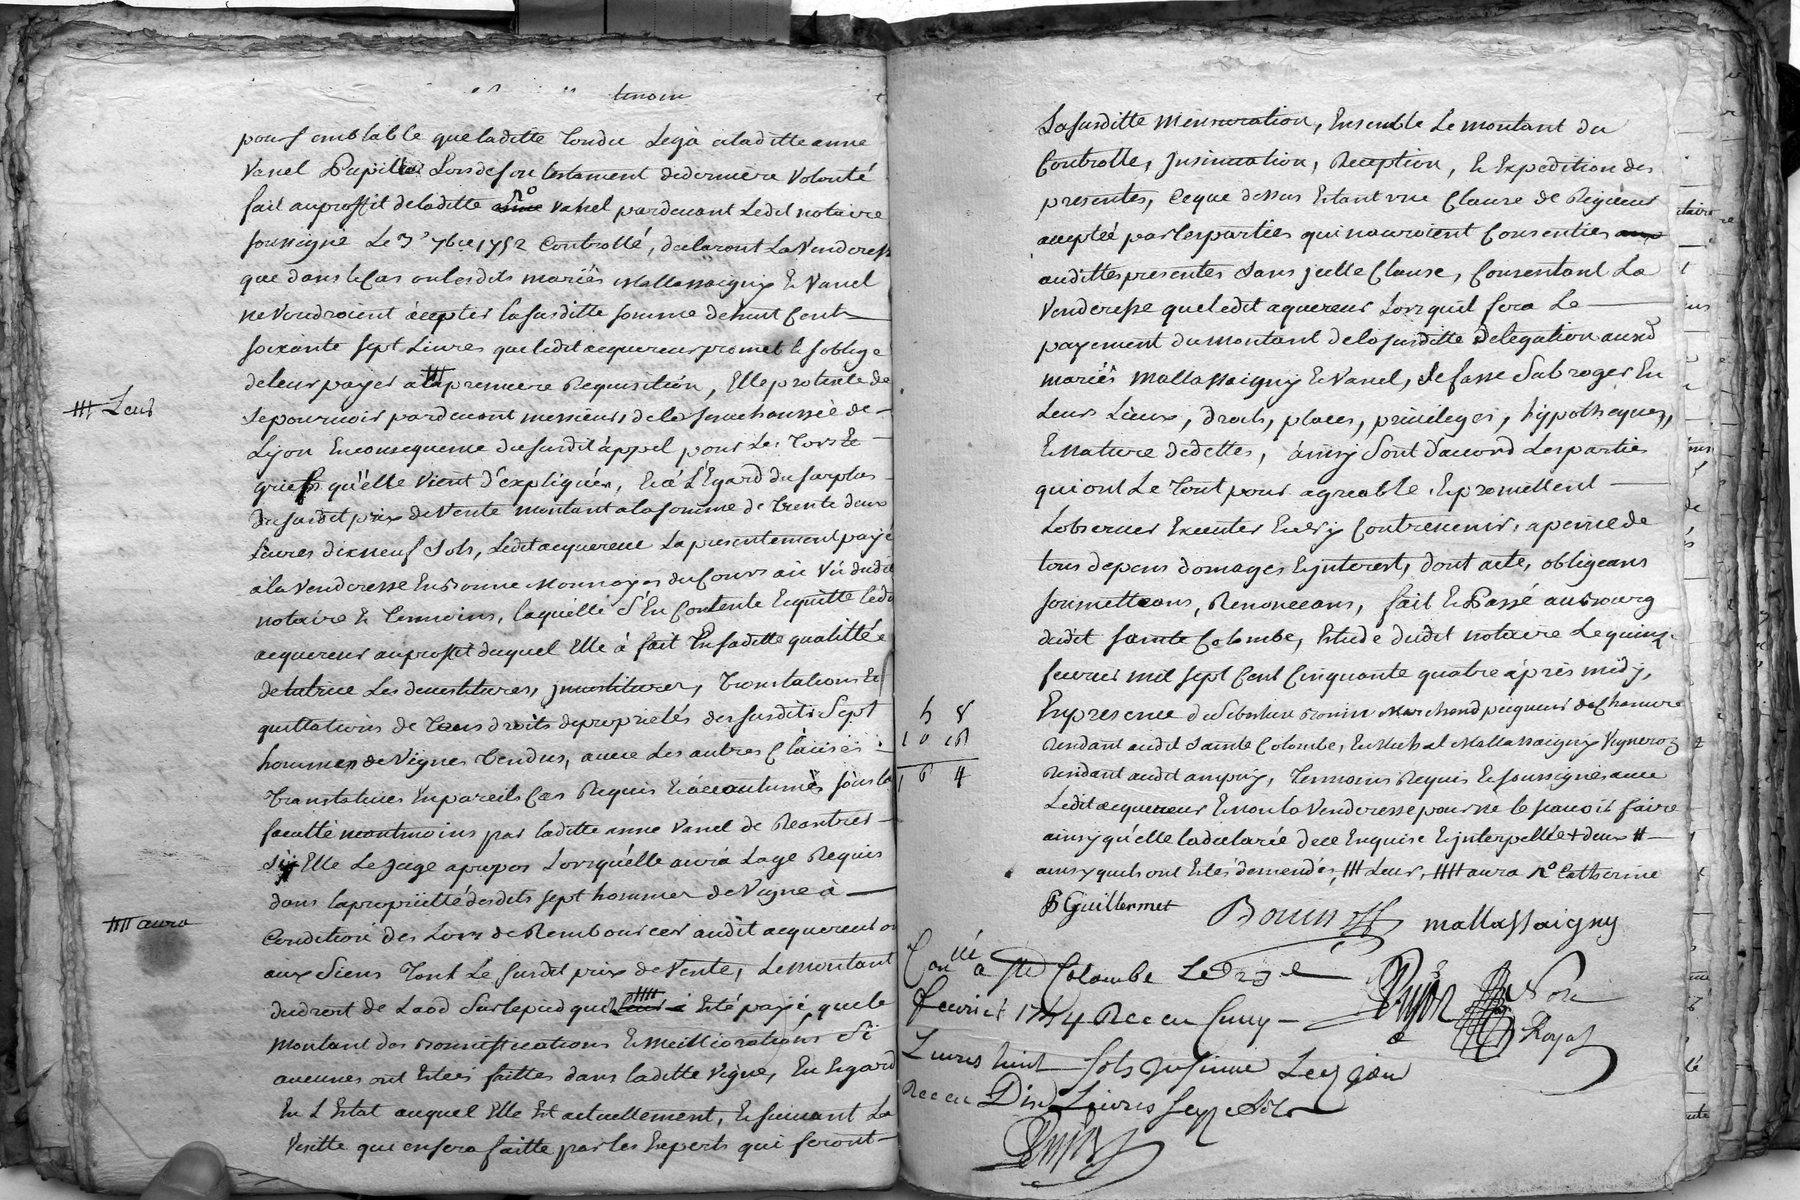 temoin
pour semblable que laditte tondu Legà a laditte anne
Vanel Pupille Lors de son testament de derniere Volonté
fait au proffit de laditte Vanel pardevant Ledit notaire
soussigné Le 3e 7bre 1752 Controllé, declarant La Venderesse
que dans le Cas ou lesdits mariés Mallassaigny & Vanel
ne Voudroient áccepter la susditte somme de huit Cent
soixante sept Livres que ledit acquereur promet & soblige
de leur payer a la premiere Requisition, Elle proteste de
se pourvoir pardevant messieurs de la senechaussée de
# Leur
Lyon En consequence du susdit áppel pour Les Torts &
griefs qu'elle Vient d'éxpliquér, & á L'Egard du surplus
du susdit prix de Vente montant a la somme de Trente deux
Livres dixneuf sols, Ledit acquereur La presentement payé
a la Venderesse En Bonne Monnoyes du Cours au Vû dudit
notaire & Temoins, laquelle s'En Contente & quitte led
acquereur au proffit duquel Elle à fait En saditte qualitté
de tutrice Les devestitures, jnvestitures, Translations &
quittations de Tous droits de proprietés des susdits sept
hommes de Vignes Vendus, avec Les autres Clauses
Translatives En pareils Cas Requis & áccoutumés sous la
faculté neantmoins par laditte anne Vanel de Rentrer
si Elle Le Juge apropos Lorsqu'elle aura Lage Requis
dans la proprietté desdits sept hommes de Vigne à
#### aura
Condition des Lors de Rembourcer audit acquereur ou
aux siens Tout Le susdit prix de Vente, Le montant
du droit de Laod sur le pied que #### á Eté payé, que le
montant des Bonniffications & Meilliorations si
aucunes ont Etées faittes dans laditte Vigne, Eu Egard
En L'Etat auquel Elle Est actuellement, & suivant La
Visitte que en sera faitte par les Experts qui feront
La susditte mensuration, Ensemble Le montant du
Controlle, Jnsinuation, Reception, & Expedition des
presentes, Ce que dessus Etant une Clause de Rigueur
acceptéé par les parties qui nauroient Consenties
audittes presentes sans jcelle Clause, Consentant La
Venderesse que ledit aquereur Lorsquil fera Le
payement du montant de la susditte delegation auxd
mariés Mallassaigny & Vanel, se fasse Subroger En
Leurs Lieux, droits, places, privileges, hypotheques,
& Nature de dettes, áinsy sont d'accord Les parties
qui ont Le Tout pour agreable & promettent
Lobserver Executer & n'y Contrevenir, a peine de
tous depens domages & jnterest, dont acte, obligeans
soumettans, Renonceans, fait & Passé au Bourg
dudit sainte Colombe, Etude dudit notaire Le quinze
fevrier mil sept Cent Cinquante quatre áprés midy,
En presence de Marchand peigneur de Chanvre
Rendant audit Sainte Colombe, & Michel Mallassaigny Vigneron
Rendant audit ampuy, Temoins Requis & soussignés avec
Ledit acquereur & Non la Venderesse pour ne le sçavoir faire
ainsy qu'elle la declaréé de ce Enquise & jnterpellée + deux #
ainsy quils ont Etés demendés, ### Leur, #### aura No Catherine
P Guillermet
mallassaigny
5 8
10 16
16 4
Con lé à Ste Colombe Le
fevrier 1754 Receu Cinq
Livres huit sols Jnsinué Led jour
Receu Dix Livres seize sols
Royal